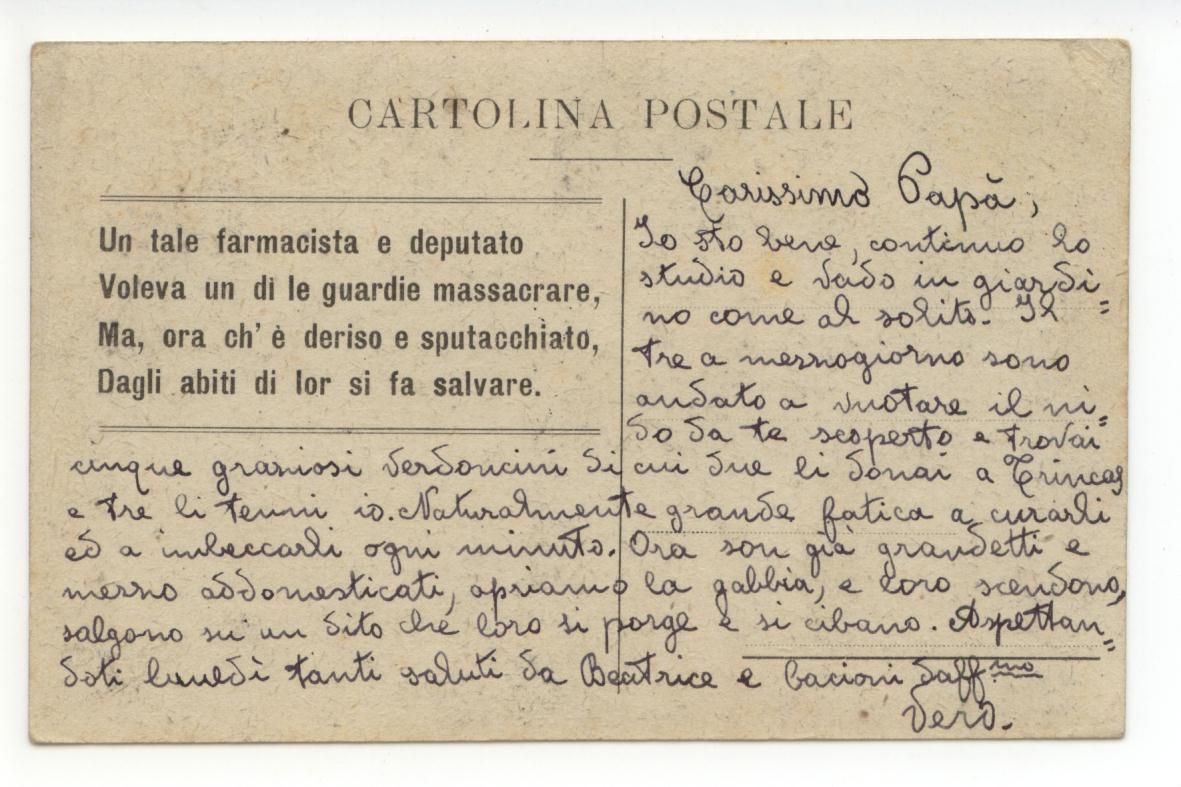 CARTOLINA POSTALE
Un tale farmacista e deputato
Voleva un di le guardie massacrare,
Ma, ora ch' è deriso e sputacchiato,
Dagli abiti di lor si fa salvare.
Carissimo Papà,
Io sto bene, continuo lo
studio e vado in giardi=
no come al solito. Il
tre a mezzogiorno sono
andato a vuotare il ni=
do da te scoperto e trovai
cinque graziosi verdoncini di cui due li donai a
e tre li tenni io. Naturalmente grande fatica a curarli
ed a imbeccarli ogni minuto. Ora son già grandetti e
mezzo addomesticati, apriamo la gabbia, e loro scendono,
salgono su un dito che loro si porge e si cibano. Aspettan=
doti lunedì tanti saluti da Beatrice e bacioni daff.mo